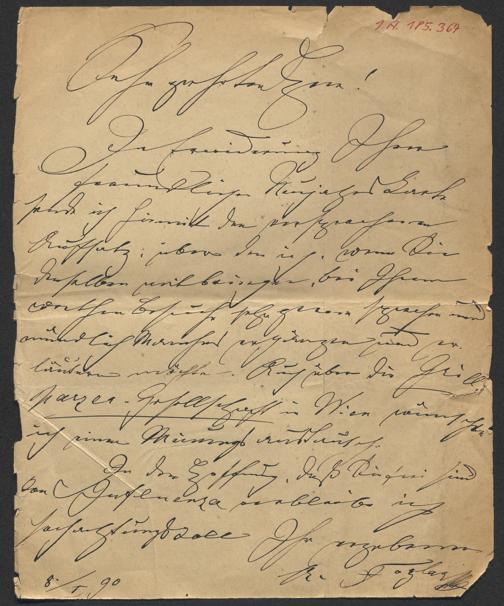 I.N. 185.364
Sehr geehrter Herr!
In Erwiderung Ihrer
freundlichen Neujahrs Karte
sende ich hiermit den versprochenen
Aufsatz, über den ich, wenn Sie
denselben mitbringen, bei Ihrem
werthen Besuche sehr gerne sprechen und
mündlich Manches ergänzen und er-
läutern möchte. Auch über die Grill-
parzer-Gesellschaft in Wien wünschte
ich einen Meinungsaustausch.
In der Hoffnung, daß Sie frei sind
von Influenza verbleibe ich
hochachtungsvoll
Ihr ergebener
8/1 90